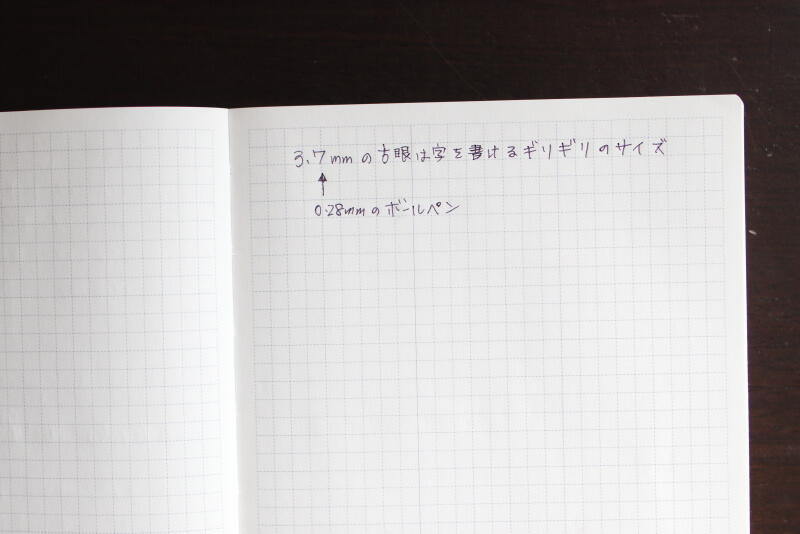 3.7mmの方眼は字を書けるギリギリのサイズ
↑
0.28mmのボールペン